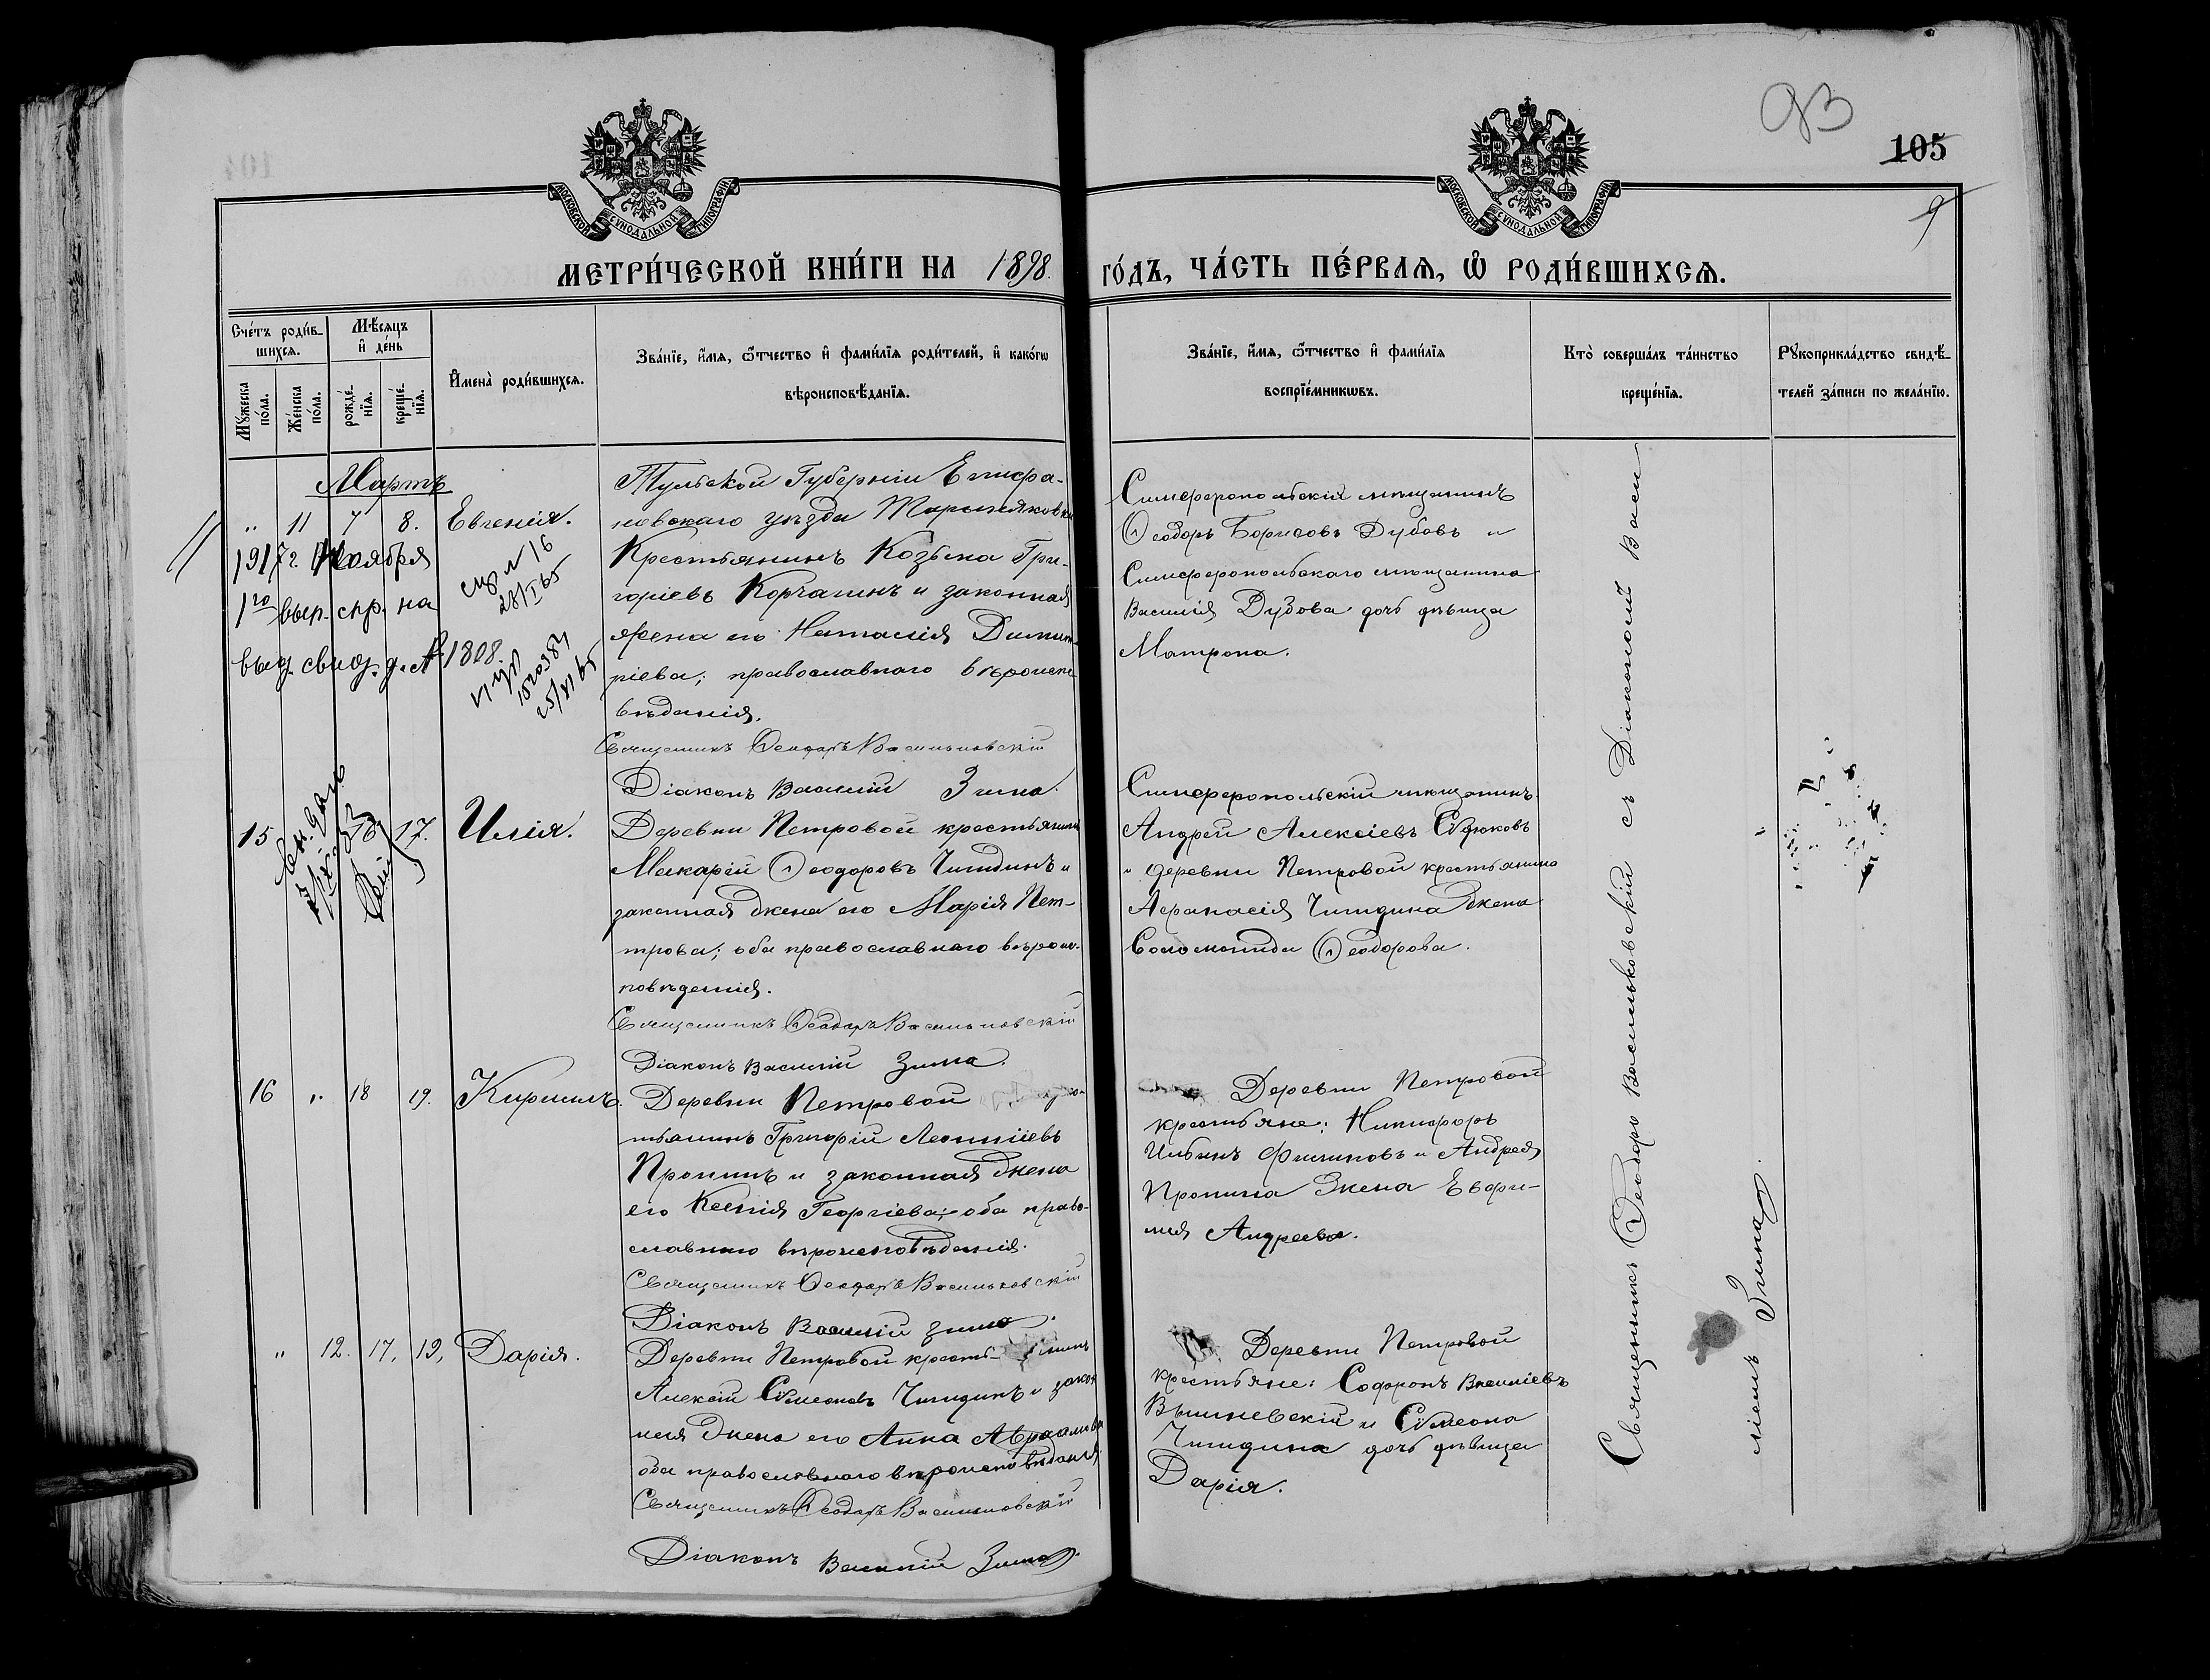 93
105
9
МОСКОВСКОЙ СУНОДАЛЬНОЙ ТИПОГРАФІИ
МОСКОВСКОЙ СУНОДАЛЬНОЙ ТИПОГРАФІИ
МЕТРИ́ЧЕСКОЙ КНИ́ГИ НА 1898. ГО́ДЪ, ЧА́СТЬ ПЕ́РВАѦ, Ѡ РОДИ́ВШИХСѦ.
Сче́тъ роди́в-
шихсѧ.
Мѣ́сѧцъ
и҆ де́нь
Мꙋ́жеска по́ла.
Же́нска по́ла.
рожде́-
нїѧ.
креще́-
нїѧ.
И҆мена̀ роди́вшихсѧ.
Зва́нїе, и҆́мѧ, ѻ҆́тчество и҆ фами́лїѧ роди́телей, и҆ како́гѡ
вѣроисповѣ́данїѧ.
Зва́нїе, и҆́мѧ, ѻ҆́тчество и҆ фами́лїѧ
воспрїе́мникѡвъ.
Кто̀ соверша́лъ та́инство
креще́нїѧ.
Рꙋкоприкла́дство свидѣ́-
телей за́писи по жела́нїю.
Мартъ
" 11 7 8. Евгенія.
1917 г. Ноября
1го выд. спр. на
выд. свид. д. № 1808
№ 16
28/I 65
1520384
25/VI 65
Тульской Губерніи Епифа-
новскаго уѣзда
Крестьянинъ Козьма Гри-
горіевъ Корчагинъ и законная
жена его Наталія Димит-
ріева; православнаго вѣроиспо-
вѣданія.
Священникъ Ѳеодоръ Васильковскій
Діаконъ Василій Зима.
Симферопольскій мѣщанинъ
Ѳеодоръ Борисовъ Дубовъ и
Симферопольскаго мѣщанина
Василія Дубова дочь дѣвица
Матрона.
15 " 16 17. Илія.
Деревни Петровой крестьянинъ
Макарій Ѳеодоровъ Чигидинъ и
законная жена его Марія Пет-
трова; оба православнаго вѣроис-
повѣданія.
Священникъ Ѳеодоръ Васильковскій
Діаконъ Василій Зима.
Симферопольскій мѣщанинъ
Андрей Алексіевъ
и деревни Петровой крестьянина
Аѳанасія Чигидина жена
Соломонида Ѳеодорова.
16 " 18 19. Кириллъ.
Деревни Петровой крес-
тьянинъ Григорій Леонтіевъ
Пронинъ и законная жена
его Ксенія Георгіева; оба право-
славнаго вѣроисповѣданія.
Священникъ Ѳеодоръ Васильковскій
Діаконъ Василій Зима.
Деревни Петровой
крестьяне: Никифоръ
Ильинъ Филиповъ и Андрея
Пронина жена Евфи-
мія Андреева.
" 12. 17. 19. Дарія.
Деревни Петровой кресть-янинъ
Алексій Сѵмеоновъ Чигидинъ и закон
ная жена его Анна Авраамова
оба православнаго вѣроисповѣданія
Священникъ Ѳеодоръ Васильковскій
Діаконъ Василій Зима.
Деревни Петровой
крестьяне: Софронъ Василіевъ
Вышневскій и Сѵмеона
Чигидина дочь дѣвица
Дарія.
Священникъ Ѳеодоръ Васильковскій съ Діакономъ Васи
ліемъ Зима.